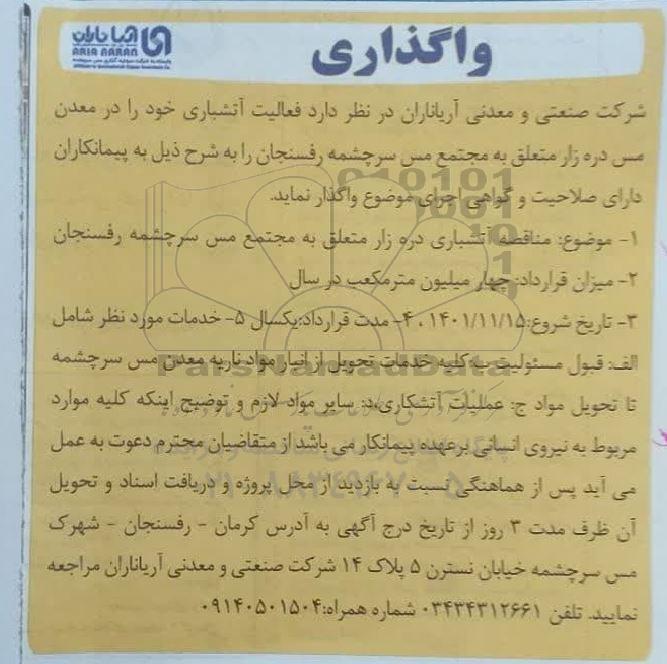 آریا ناران
ARIA NARAN
واگذاری
شرکت صنعتی و معدنی آریاناران در نظر دارد فعالیت آتشباری خود را در معدن
مس دره زار متعلق به مجتمع مس سرچشمه رفسنجان را به شرح ذیل به پیمانکاران
دارای صلاحیت و گواهی اجرای موضوع واگذار نماید.
۱- موضوع: مناقصه آتشباری دره زار متعلق به مجتمع مس سرچشمه رفسنجان
۲- میزان قرارداد: چهار میلیون مترمکعب در سال
۳- تاریخ شروع: ۱۴۰۱/۱۱/۱۵ ، ۴- مدت قرارداد: یکسال ۵- خدمات مورد نظر شامل
الف: قبول مسئولیت ب: کلیه خدمات تحویل از انبار مواد ناریه معدن مس سرچشمه
تا تحویل مواد ج: عملیات آتشکاری د: سایر مواد لازم و توضیح اینکه کلیه موارد
مربوط به نیروی انسانی برعهده پیمانکار می باشد از متقاضیان محترم دعوت به عمل
می آید پس از هماهنگی نسبت به بازدید از محل پروژه و دریافت اسناد و تحویل
آن ظرف مدت ۳ روز از تاریخ درج آگهی به آدرس کرمان - رفسنجان - شهرک
مس سرچشمه خیابان نسترن ۵ پلاک ۱۴ شرکت صنعتی و معدنی آریاناران مراجعه
نمایید. تلفن ۰۳۴۳۴۳۱۲۶۶۱ شماره همراه: ۰۹۱۴۰۵۰۱۵۰۴
ParsNamadData
۰۲۱-۸۸۳۴۹۶۷۰-۵